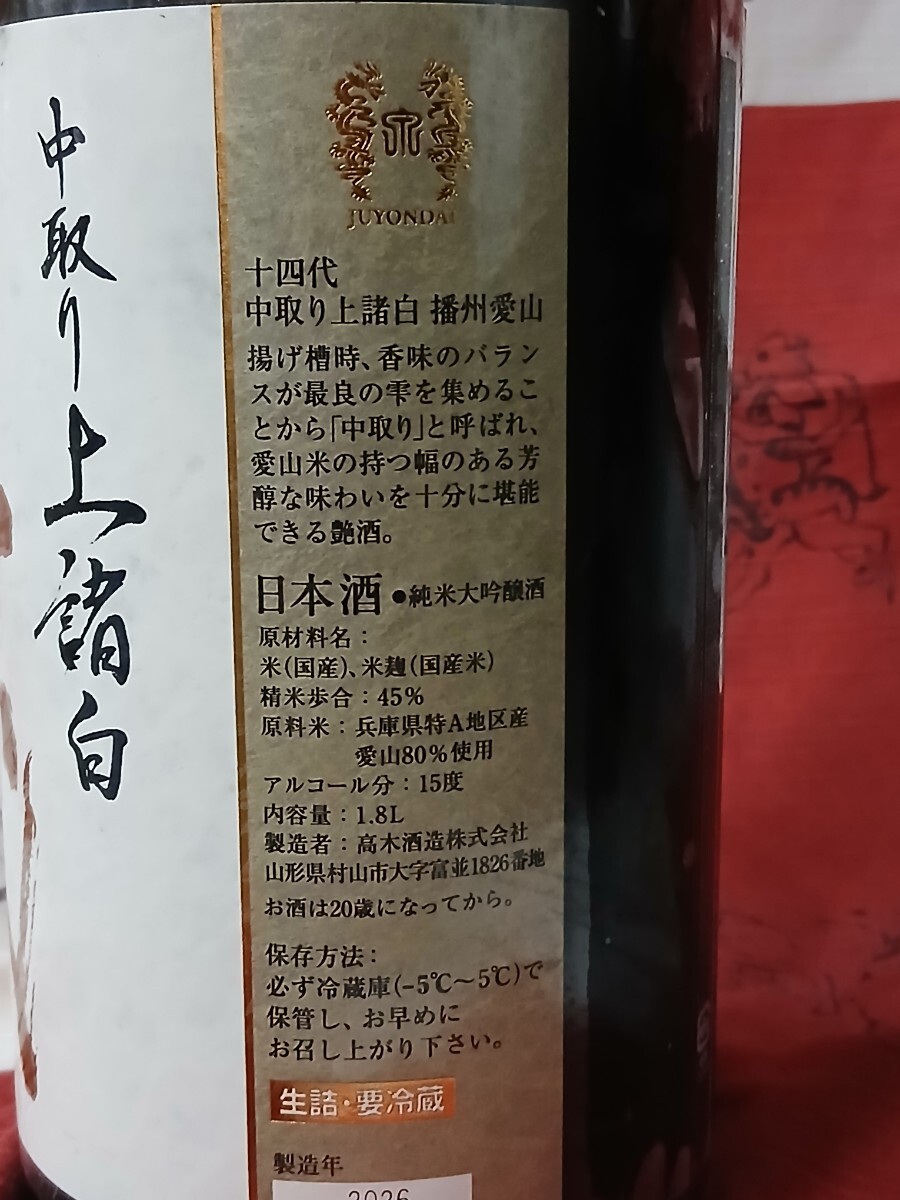 中取り上諸白
JUYONDAI
十四代
中取り上諸白 播州愛山
揚げ槽時、香味のバラン
スが最良の雫を集めるこ
とから「中取り」と呼ばれ、
愛山米の持つ幅のある芳
醇な味わいを十分に堪能
できる艶酒。
日本酒●純米大吟醸酒
原材料名：
米(国産)、米麹(国産米)
精米歩合：45%
原料米：兵庫県特A地区産
愛山80%使用
アルコール分：15度
内容量：1.8L
製造者：高木酒造株式会社
山形県村山市大字富並1826番地
お酒は20歳になってから。
保存方法：
必ず冷蔵庫(-5℃〜5℃)で
保管し、お早めに
お召し上がり下さい。
生詰・要冷蔵
製造年
2026